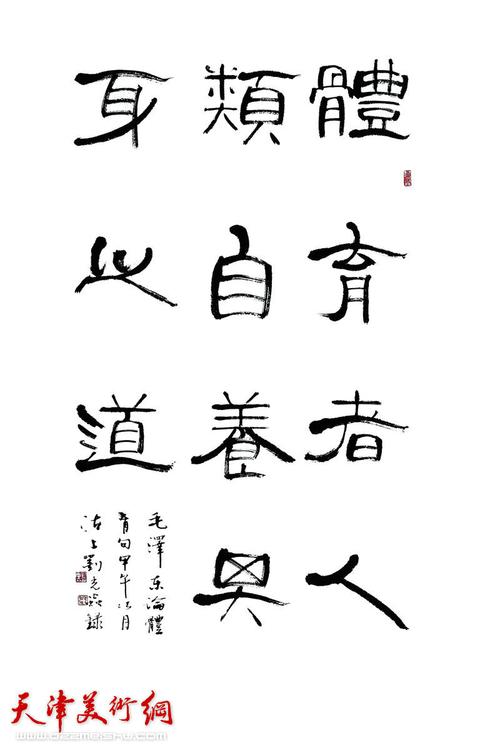 體育者人
類自養其
身之道
毛澤东論體
育句甲午月
沽上劉光錄
天津美術網
www.022meishu.com